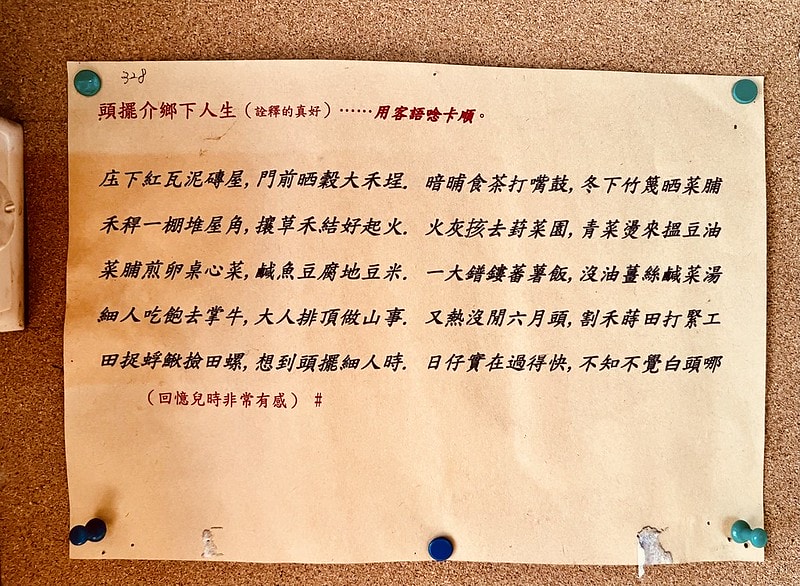 328
頭擺介鄉下人生（詮釋的真好）……用客語唸卡順。
庄下紅瓦泥磚屋，門前晒穀大禾埕. 暗晡食茶打嘴鼓，冬下竹篾晒菜脯
禾稈一棚堆屋角，攘草禾結好起火. 火灰㧡去葑菜園，青菜燙來搵豆油
菜脯煎卵桌心菜，鹹魚豆腐地豆米. 一大鐥鏤蕃薯飯，沒油薑絲鹹菜湯
細人吃飽去掌牛，大人排頂做山事. 又熱沒閒六月頭，割禾蒔田打緊工
田捉蜉鰍撿田螺，想到頭擺細人時. 日仔實在過得快，不知不覺白頭哪
（回憶兒時非常有感） #